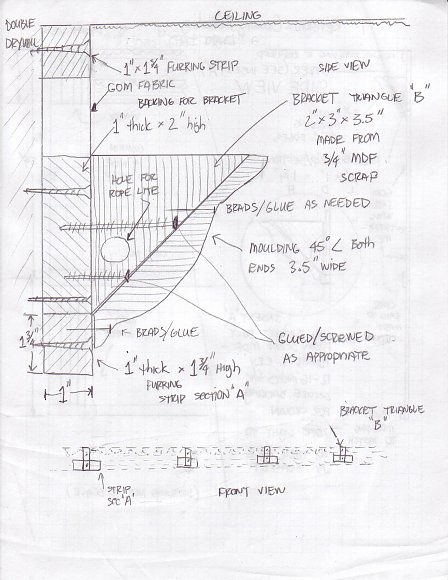 CEILING
DOUBLE
DRYWALL
1" x 1 3/4" FURRING STRIP
SIDE VIEW
GOM FABRIC
BACKING FOR BRACKET
1" thick x 2" high
BRACKET TRIANGLE "B"
2" x 3" x 3.5"
MADE FROM
3/4" MDF
SCRAP
HOLE FOR
ROPE LITE
BRADS/GLUE AS NEEDED
MOULDING 45°∠ Both
ENDS 3.5" WIDE
1 3/4"
BRADS/GLUE
GLUED/SCREWED
AS APPROPRIATE
1" thick x 1 3/4" High
FURRING
STRIP SECTION "A"
1"
BRACKET TRIANGLE
"B"
STRIP
SEC "A"
FRONT VIEW